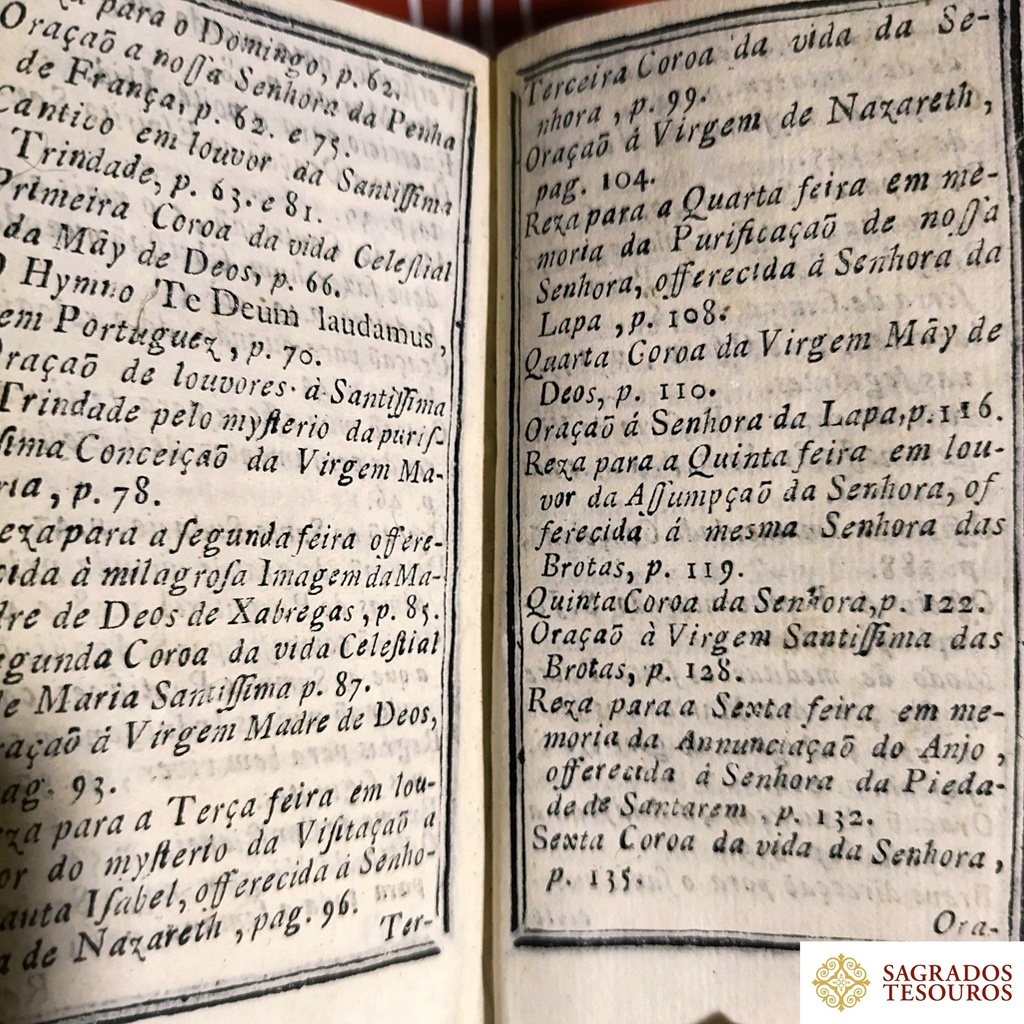 za para o Domingo, p. 62.
Oraçaõ a noſſa Senhora da Penha
de França, p. 62. e 75.
Cantico em louvor da Santiſſima
Trindade, p. 63. e 81.
Primeira Coroa da vida Celeſtial
da Mãy de Deos, p. 66.
O Hymno Te Deum laudamus,
em Portuguez, p. 70.
Oraçaõ de louvores à Santiſſima
Trindade pelo myſterio da puriſ-
ſima Conceiçaõ da Virgem Ma-
ria, p. 78.
eza para a ſegunda feira offere-
cida à milagroſa Imagem da Ma-
dre de Deos de Xabregas, p. 85.
egunda Coroa da vida Celeſtial
de Maria Santiſſima p. 87.
raçaõ á Virgem Madre de Deos,
pag. 93.
eza para a Terça feira em lou-
or do myſterio da Viſitaçaõ a
anta Iſabel, offerecida á Senho-
a de Nazareth, pag. 96.
Ter-
Terceira Coroa da vida da Se-
nhora, p. 99.
Oraçaõ á Virgem de Nazareth,
pag. 104.
Reza para a Quarta feira em me-
moria da Purificaçaõ de noſſa
Senhora, offerecida á Senhora da
Lapa, p. 108.
Quarta Coroa da Virgem Mãy de
Deos, p. 110.
Oraçaõ á Senhora da Lapa, p. 116.
Reza para a Quinta feira em lou-
vor da Aſſumpçaõ da Senhora, of
ferecida á mesma Senhora das
Brotas, p. 119.
Quinta Coroa da Senhora, p. 122.
Oraçaõ à Virgem Santiſſima das
Brotas, p. 128.
Reza para a Sexta feira em me-
moria da Annunciaçaõ do Anjo,
offerecida á Senhora da Pieda-
de de Santarem, p. 132.
Sexta Coroa da vida da Senhora,
p. 135.
Ora-
SAGRADOS
TESOUROS